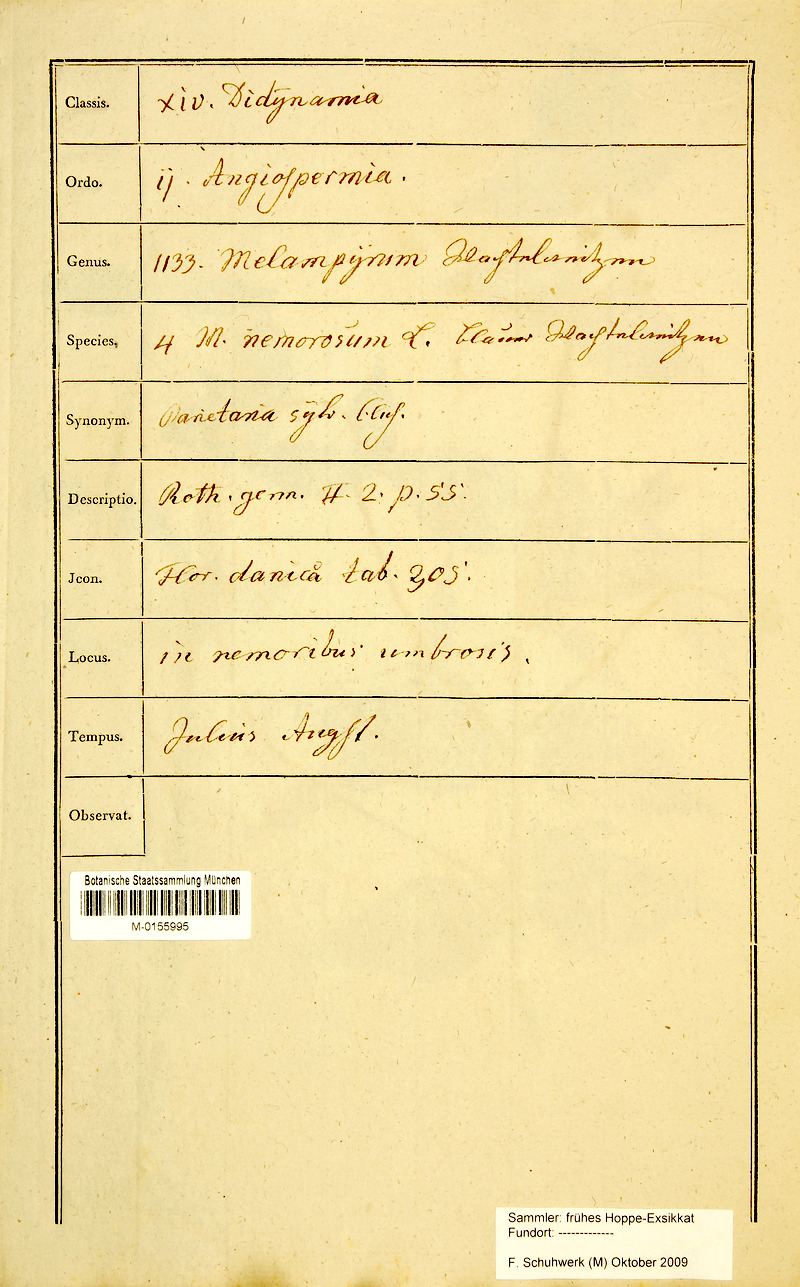 Classis. xiv. Didynamia
Ordo. ij. Angiospermia.
Genus. 1133. Melampyrum Wachtelweitzen
Species, 4 M. nemorosum L. blauer Wachtelweitzen
Synonym. Parietaria sylv. Clus.
Descriptio. Roth. germ. II. 2. p. 55.
Jcon. Flor. danica tab. 305.
Locus. in nemoribus umbrosis.
Tempus. Julius Augst.
Observat.
Botanische Staatssammlung München
M-0155995
Sammler: frühes Hoppe-Exsikkat
Fundort: -------------
F. Schuhwerk (M) Oktober 2009